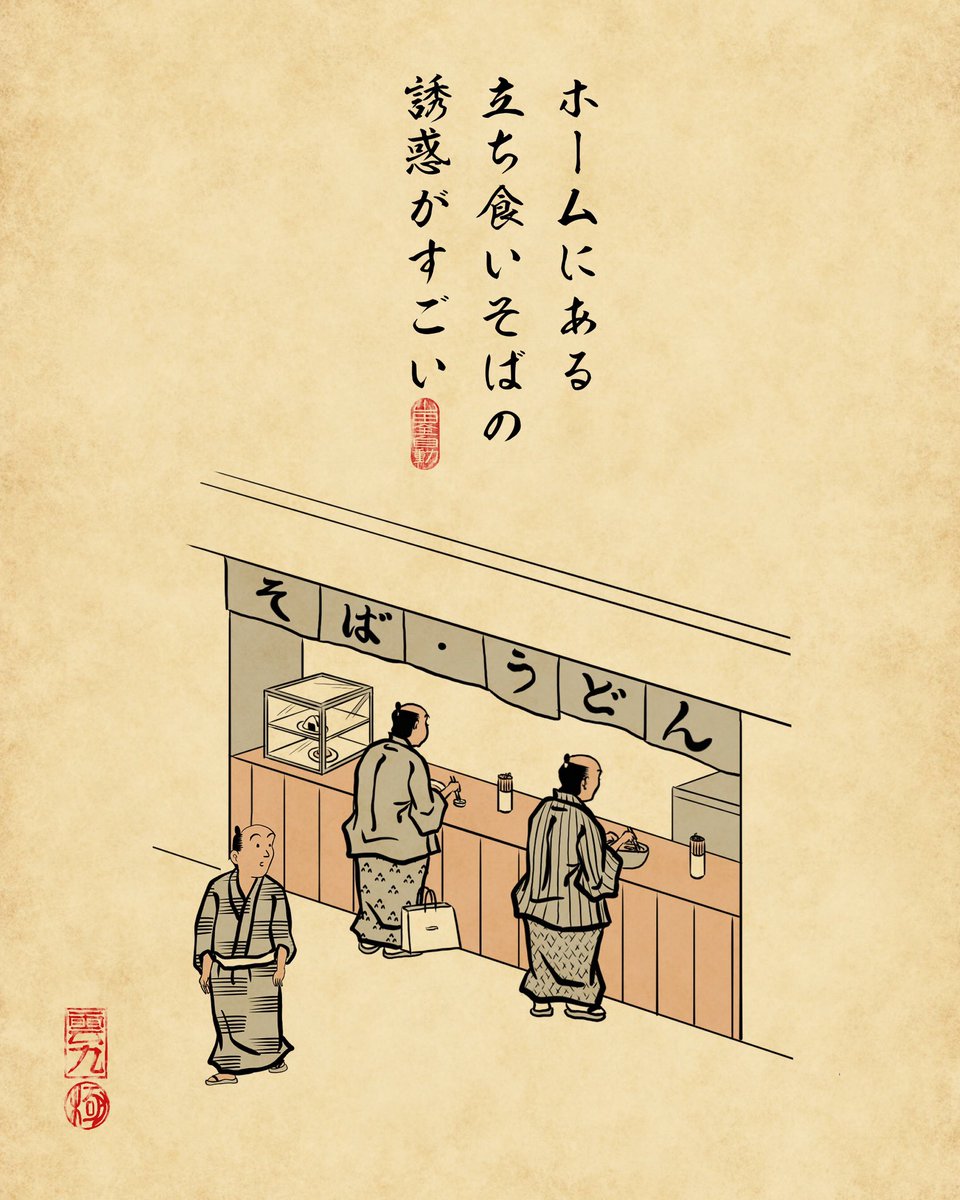 ホームにある
立ち食いそばの
誘惑がすごい
そば・うどん